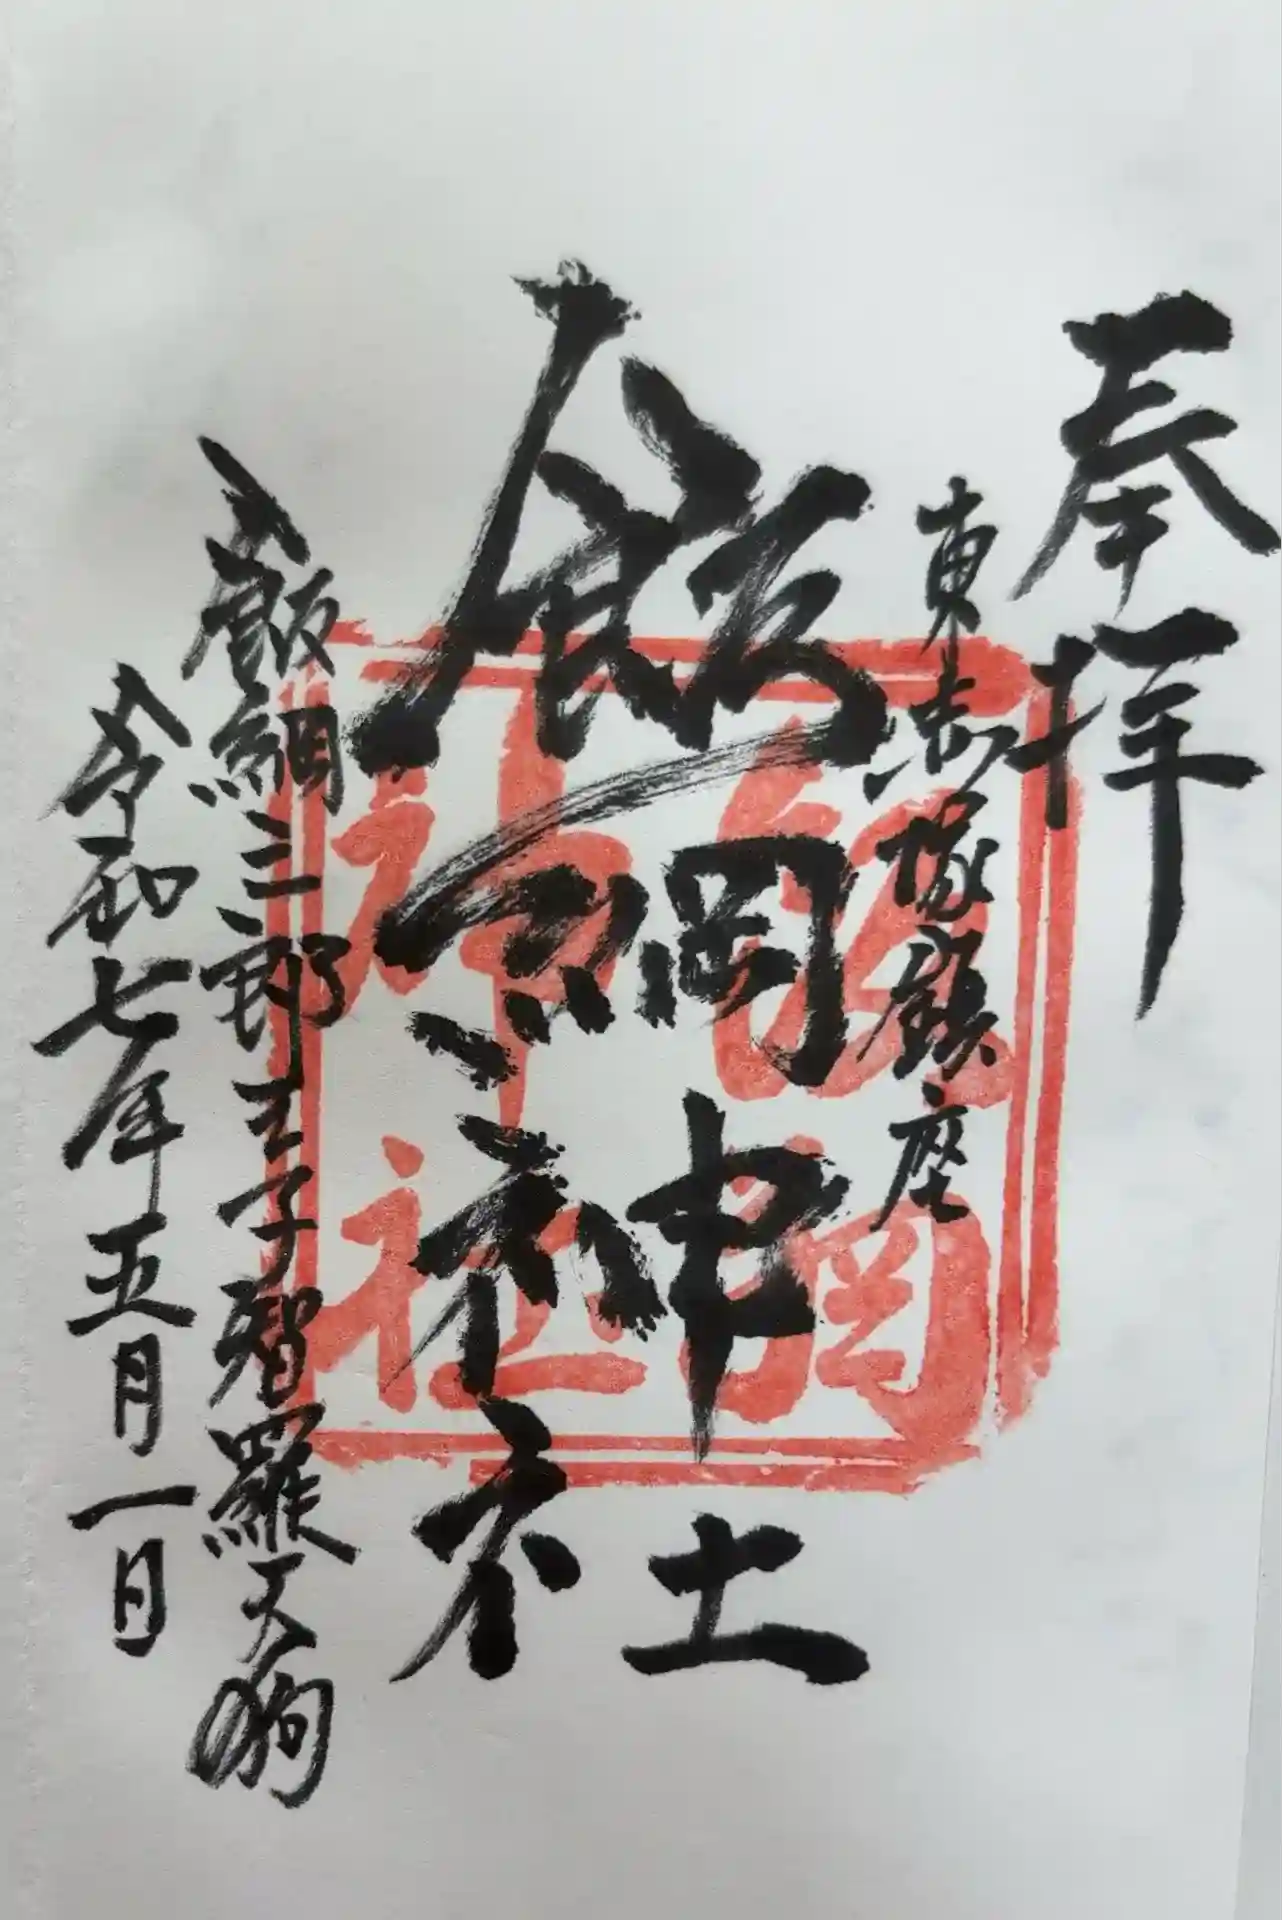 奉拝
東志塚鎮座
飯綱神社
飯綱三郎王子智羅天狗
令和七年五月一日
飯綱
神社